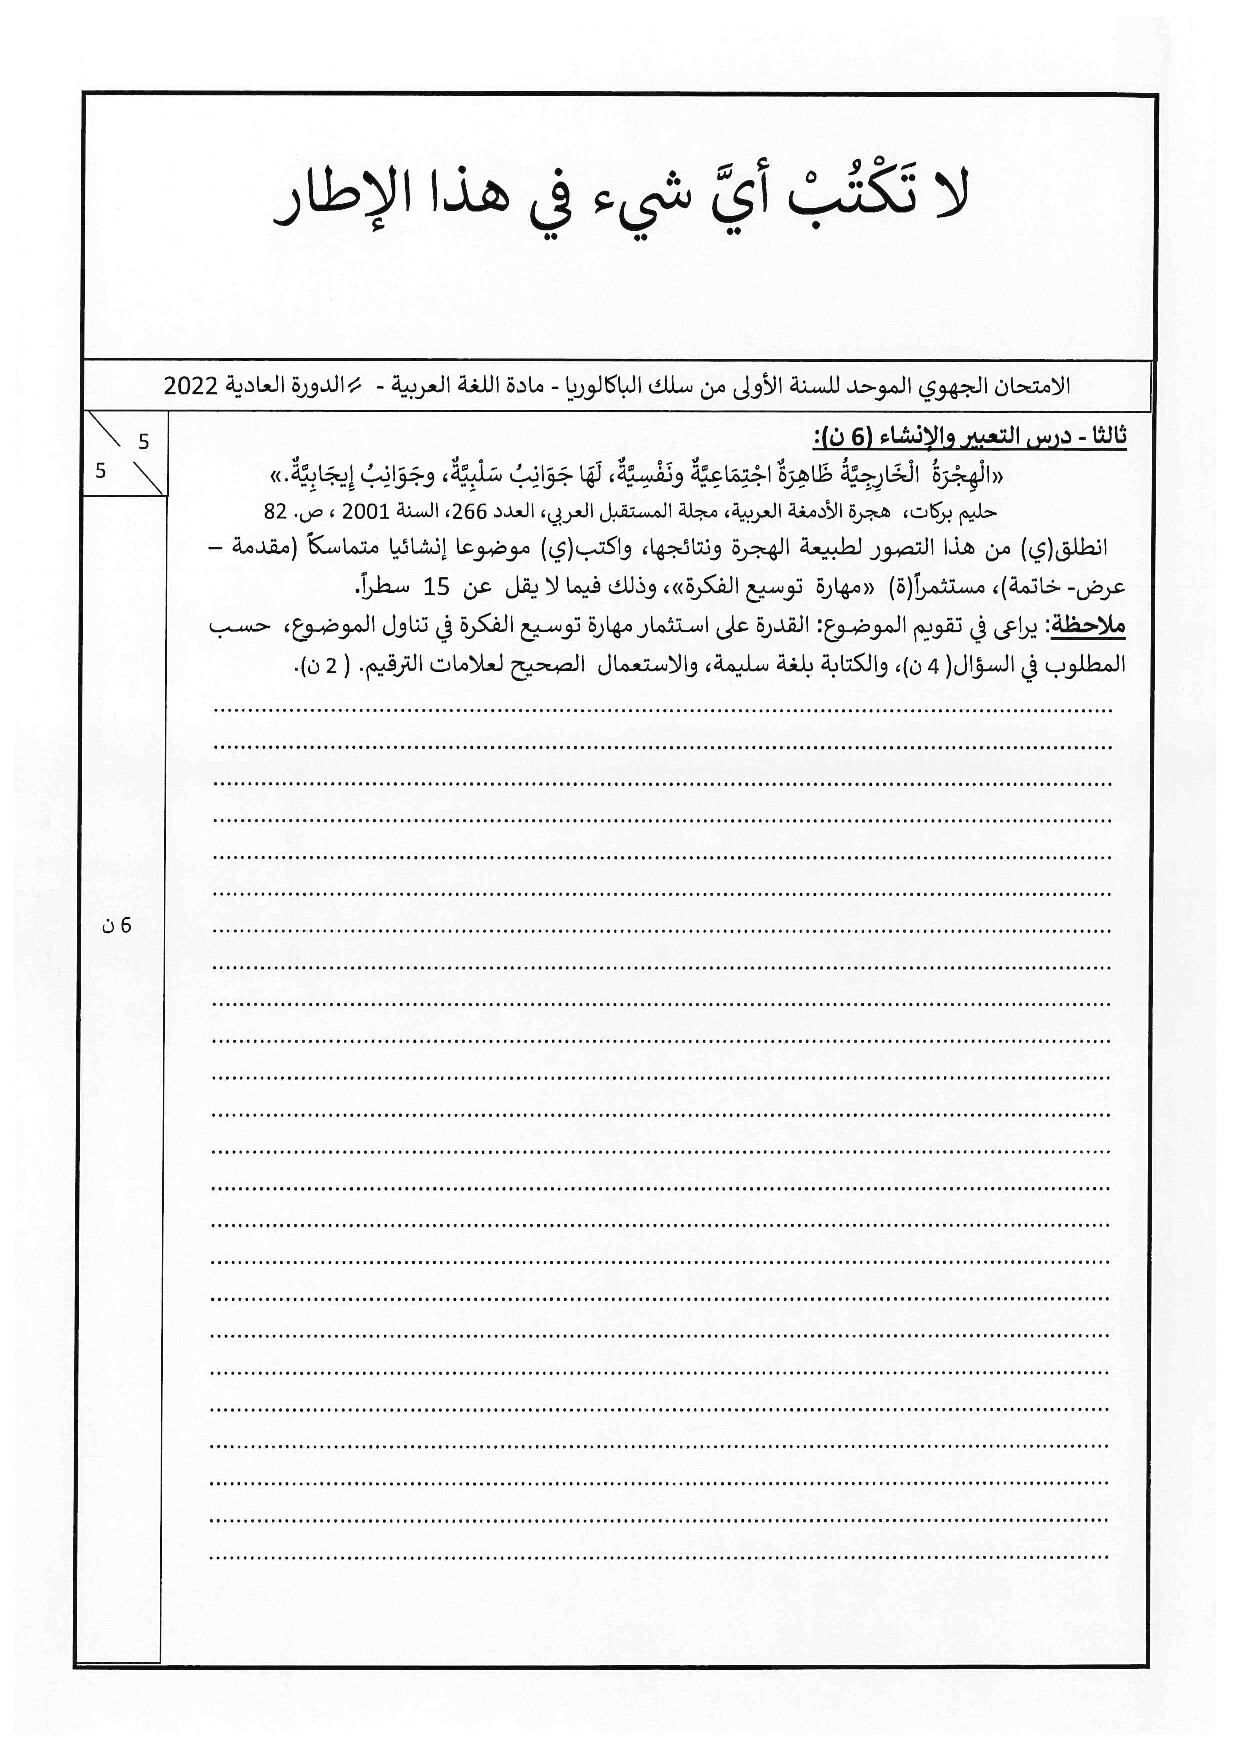 لا تَكْتُبْ أيَّ شيء في هذا الإطار
الامتحان الجهوي الموحد للسنة الأولى من سلك الباكالوريا - مادة اللغة العربية - الدورة العادية 2022
5
5
ثالثا - درس التعبير والإنشاء (6 ن):
«الْهِجْرَةُ الْخَارِجِيَّةُ ظَاهِرَةٌ اجْتِمَاعِيَّةٌ ونَفْسِيَّةٌ، لَهَا جَوَانِبُ سَلْبِيَّةٌ، وجَوَانِبُ إيجَابِيَّةٌ.»
حليم بركات، هجرة الأدمغة العربية، مجلة المستقبل العربي، العدد 266، السنة 2001 ، ص. 82
انطلق(ي) من هذا التصور لطبيعة الهجرة ونتائجها، واكتب(ي) موضوعا إنشائيا متماسكاً (مقدمة –
عرض- خاتمة)، مستثمراً(ة) «مهارة توسيع الفكرة»، وذلك فيما لا يقل عن 15 سطراً.
ملاحظة: يراعى في تقويم الموضوع: القدرة على استثمار مهارة توسيع الفكرة في تناول الموضوع، حسب
المطلوب في السؤال( 4 ن)، والكتابة بلغة سليمة، والاستعمال الصحيح لعلامات الترقيم. ( 2 ن).
6 ن